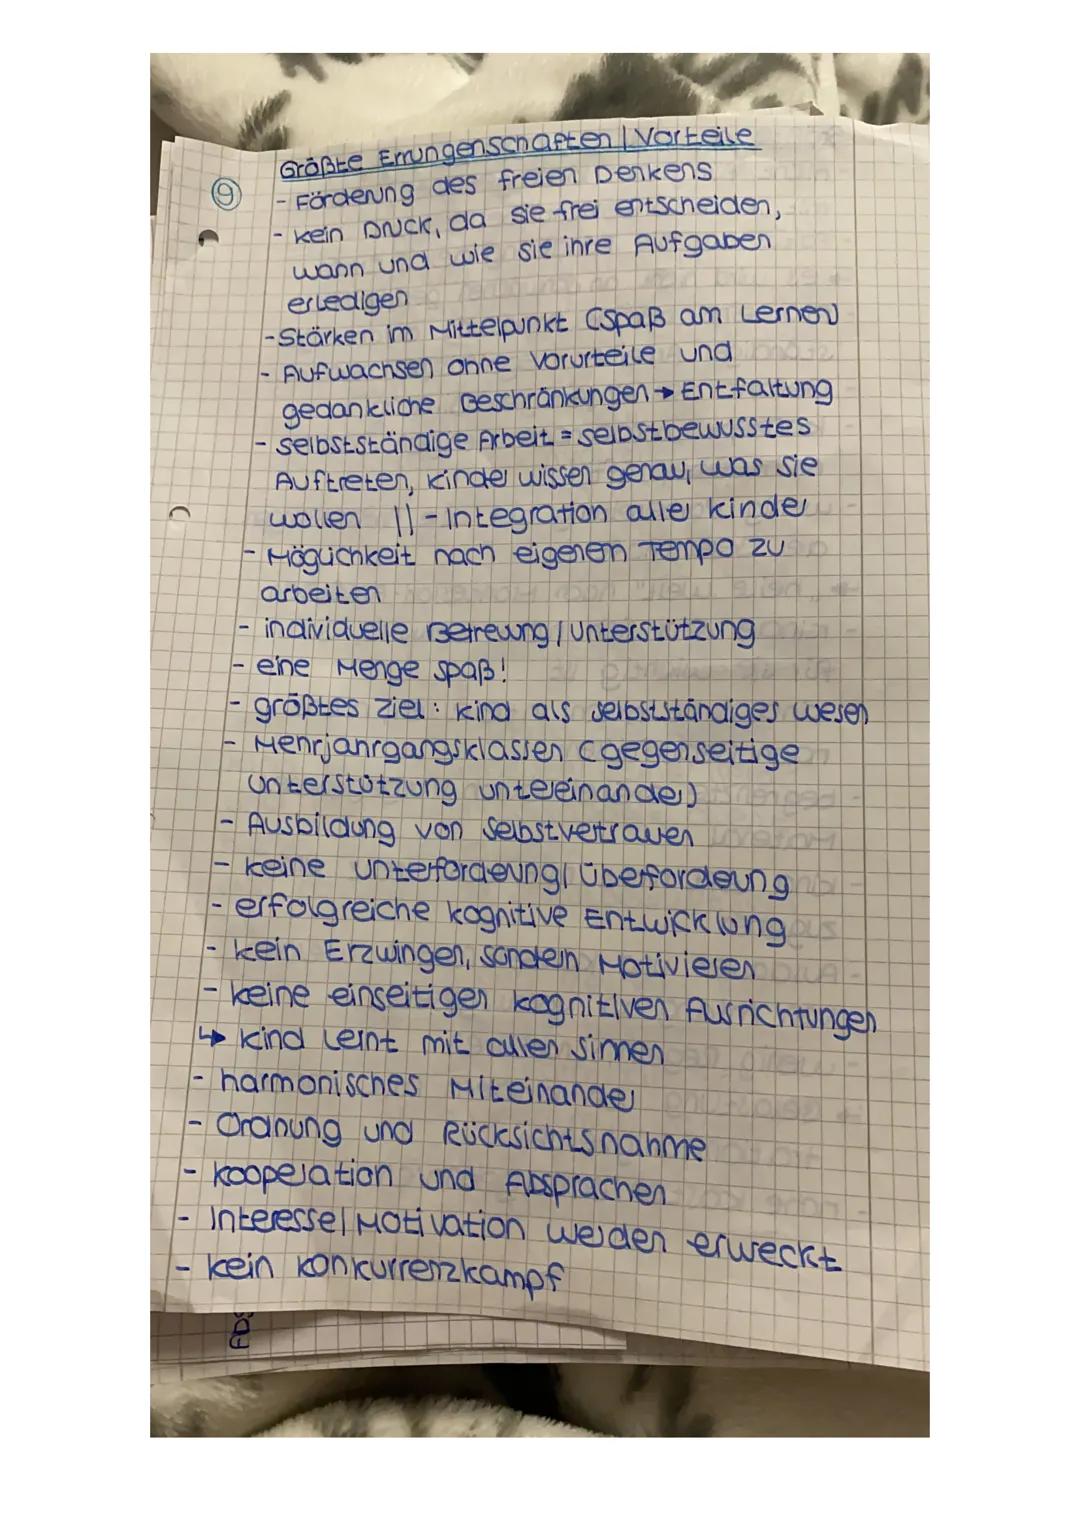 Größte Errungenschaften | Vorteile
⑨
- Förderung des freien Denkens
- kein Druck, da sie frei entscheiden,
wann und wie sie ihre Aufgaben
erledigen
- Stärken im Mittelpunkt (Spaß am Lernen)
- Aufwachsen ohne Vorurteile und
gedankliche Beschränkungen → Entfaltung
- selbstständige Arbeit = selbstbewusstes
Auftreten, Kinder wissen genau, was sie
wollen || - Integration aller Kinder
- Möglichkeit nach eigenen Tempo zu
arbeiten
- individuelle Betreuung / Unterstützung
- eine Menge Spaß!
- größtes Ziel: Kind als selbstständiges Wesen
- Mehrjahrgangsklassen (gegenseitige
Unterstützung untereinander)
- Ausbildung von Selbstvertrauen
- keine Unterforderung/ Überforderung
- erfolgreiche kognitive Entwicklung
- kein Erzwingen, sondern Motivieren
- keine einseitigen kognitiven Ausrichtungen
↳ Kind lernt mit allen Sinnen
- harmonisches Miteinander
- Ordnung und Rücksichtsnahme
- Kooperation und Absprachen
- Interesse/ Motivation werden erweckt
- kein Konkurrenzkampf